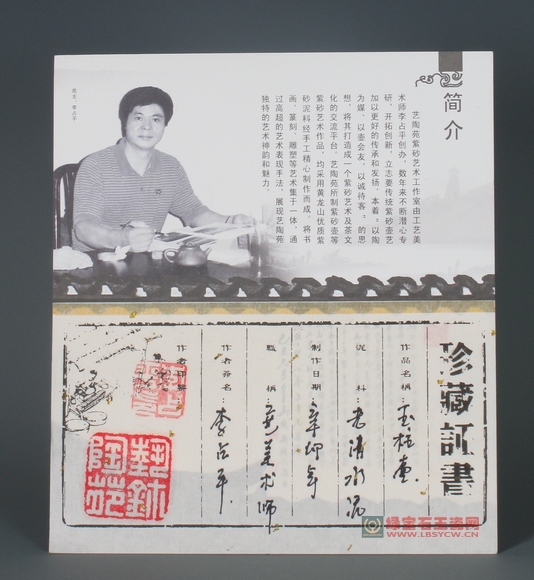 简介
艺陶苑紫砂艺术工作室由工艺美
术师李占平创办，数年来不断潜心专
研、开拓创新，立志要传统紫砂壶艺
加以更好的传承和发扬。本着“以陶
为媒、以壶会友、以诚待客”的思
想，将其打造成一个紫砂艺术及茶文
化的交流平台。艺陶苑所制紫砂壶等
紫砂艺术作品，均采用黄龙山优质紫
砂泥料经手工精心制作而成，将书
画、篆刻、雕塑等艺术集于一体，通
过高超的艺术表现手法，展现艺陶苑
独特的艺术神韵和魅力。
苑主：李占平
珍藏証書
作品名稱：玉柱壶
泥料：老清水泥
制作日期：辛卯年
職稱：工艺美术师
作者簽名：李占平
作者印鑒
藝術陶苑
绿宝石玉瓷网
WWW.LBSYCW.CN